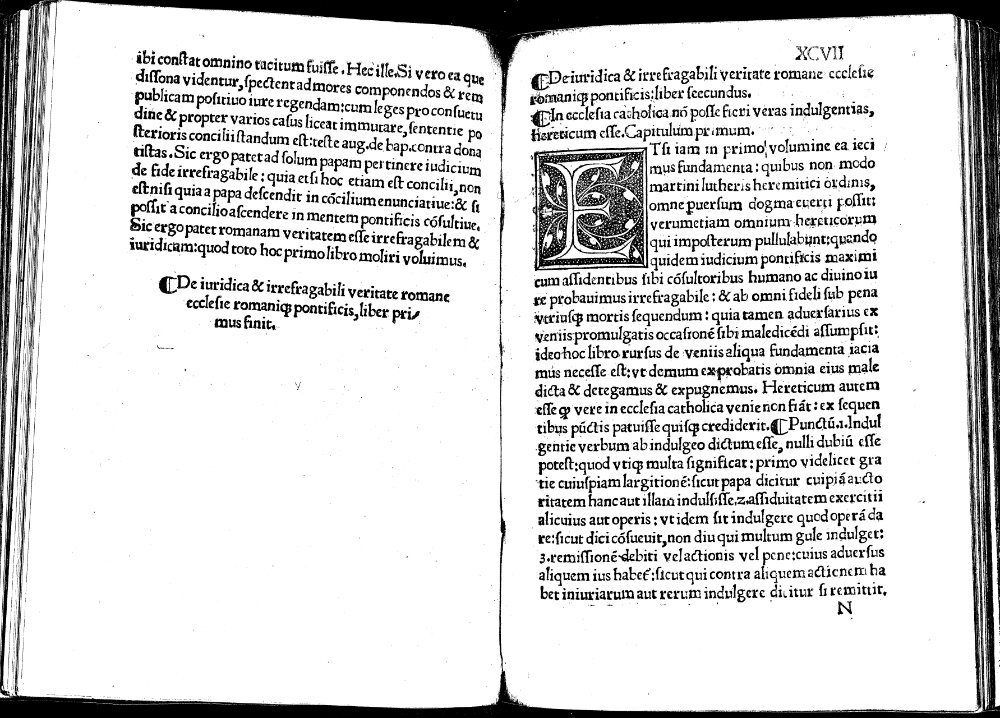 ibi constat omnino tacitum fuisse. Hec ille. Si vero ea que
dissona videntur, spectent ad mores componendos & rem
publicam positiuo iure regendam: cum leges pro consuetu
dine & propter varios casus liceat immutare, sententie po
sterioris concilii standum est: teste aug. de bap. contra dona
tistas. Sic ergo patet ad solum papam pertinere iudicium
de fide irrefragabile: quia etsi hoc etiam est concilii, non
est nisi quia a papa descendit in cōcilium enunciatiue: & si
possit a concilio ascendere in mentem pontificis cōsultiue.
Sic ergo patet romanam veritatem esse irrefragabilem &
iuridicam: quod toto hoc primo libro moliri voluimus.
¶De iuridica & irrefragabili veritate romane
ecclesie romaniqꝫ pontificis, liber pri/
mus finit.
XCVII
¶De iuridica & irrefragabili veritate romane ecclesie
romaniqꝫ pontificis: liber seecundus.
¶In ecclesia catholica nō posse fieri veras indulgentias,
hereticum esse. Capitulum primum.
ETsi iam in primo volumine ea ieci
mus fundamenta: quibus non modo
martini lutheris heremitici ordinis,
omne ꝑuersum dogma euerti possit:
verumetiam omnium hereticorum
qui imposterum pullulabunt: quando
quidem iudicium pontificis maximi
cum assidentibus sibi cōsultoribus humano ac diuino iu
re probauimus irrefragabile: & ab omni fideli sub pena
vtriusqꝫ mortis sequendum: quia tamen aduersarius ex
veniis promulgatis occasionē sibi maledicēdi assumpsit:
ideo hoc libro rursus de veniis aliqua fundamenta iacia
mus necesse est: vt demum exprobatis omnia eius male
dicta & detegamus & expugnemus. Hereticum autem
esse ꝙ vere in ecclesia catholica venie non fiāt: ex sequen
tibus pūctis patuisse quisqꝫ crediderit. ¶Punctū.1. Indul
gentie verbum ab indulgeo dictum esse, nulli dubiū esse
potest: quod vtiqꝫ multa significat: primo videlicet gra
tie cuiuspiam largitionē: sicut papa dicitur cuipiā aucto
ritatem hanc aut illam indulsisse. 2. assiduitatem exercitii
alicuius aut operis: vt idem sit indulgere quod operā da
re: sicut dici cōsueuit, non diu qui multum gule indulget:
3. remissionē debiti vel actionis vel pene: cuius aduersus
aliquem ius habet: sicut qui contra aliquem actionem ha
bet iniuriarum aut rerum indulgere dicitur si remittit.
N